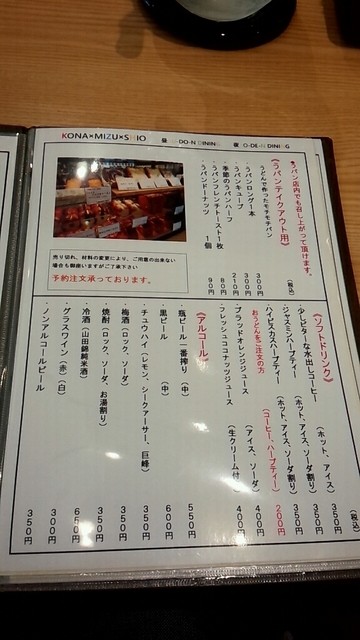 KONA×MIZU×SHIO 昼 U-DO-N DINING 夜 O-DE-N DINING
うパン店内でも召し上がって頂けます。
《うパンテイクアウト用》
うどんで作ったモチモチパン (税込)
・うパンロング1本 300円
・うパンキューブ 300円
・季節のうパンハーフ 210円
・うパンフレンチトースト1枚 80円
・うパンドーナッツ 1個 90円
売り切れ、材料の変更により、ご用意の出来ない
場合も御座いますがご了承下さい
予約注文承っております。
《ソフトドリンク》 (税込)
・少しビターな水出しコーヒー (ホット、アイス) 350円
・ジャスミンハーブティー (ホット、アイス、ソーダ割り) 350円
・ハイビスカスハーブティー (ホット、アイス、ソーダ割り) 350円
おうどんをご注文の方 (コーヒー、ハーブティー) 200円
・ブラッドオレンジジュース (アイス、ソーダ) 400円
・フレッシュココナッツジュース (生クリーム付) 400円
《アルコール》
・瓶ビール一番搾り (中) 550円
・黒ビール (中) 600円
・チュウハイ (レモン、シークァーサー、巨峰) 350円
・梅酒 (ロック、ソーダ) 350円
・焼酎 (ロック、ソーダ、お湯割り) 350円
・冷酒 (山田錦純米酒) 650円
・グラスワイン (赤) (白) 300円
・ノンアルコールビール 350円